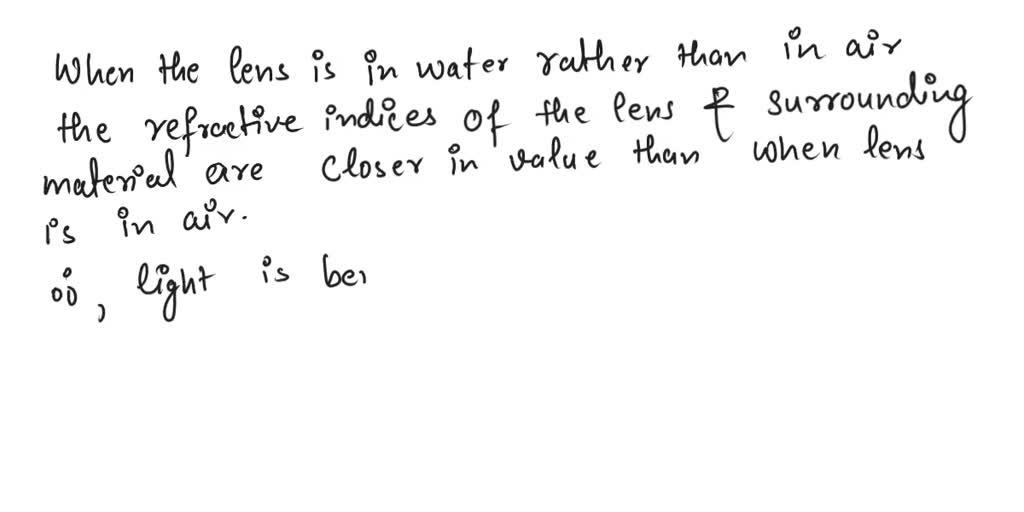 When the lens is in water rather than in air
the refractive indices of the lens & surrounding
material are closer in value than when lens
is in air.
∴, light is be